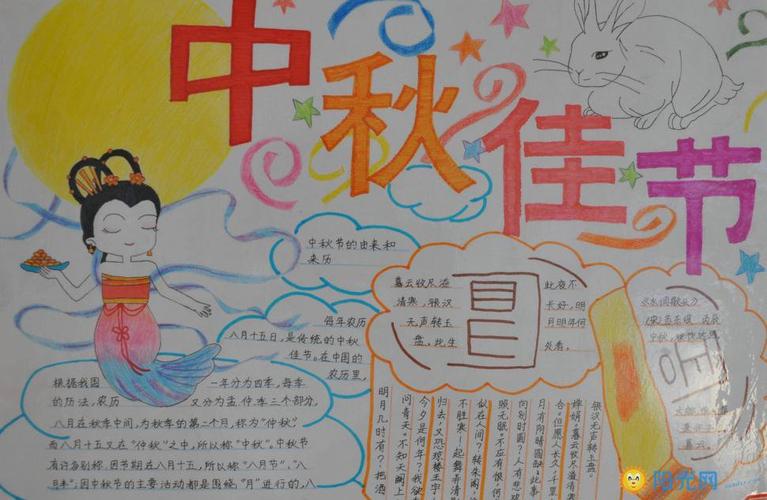 中秋佳节
中秋节的由来和
来历
每年农历
八月十五日，是传统的中秋
佳节。在中国的
农历里，
根据我国
的历法，农历
一年分为四季，每季
又分为孟、仲、季三个部分，
八月在秋季中间，为秋季的第二个月，称为“仲秋”。
而八月十五又在“仲秋”之中，所以称“中秋”。中秋节
有许多别称：因节期在八月十五，所以称“八月节”、“八
因中秋节的主要活动都是围绕“月”进行的，
暮云收尽溢
清寒，银汉
无声转玉
盘，此生
此夜不
长好，明
月明年何
处看。
明月几时有？把酒
问青天。不知天阙上
今夕是何年？我欲
归去，又恐琼楼玉宇
不胜寒！起舞弄清
似在人间？转朱阁
照无眠。不应有恨，何
向别时圆？人有悲
月有阴晴圆缺，此事
合。但愿人长久，千里
婵娟。暮云收尽溢清寒
银汉无声转玉盘。
阳光网